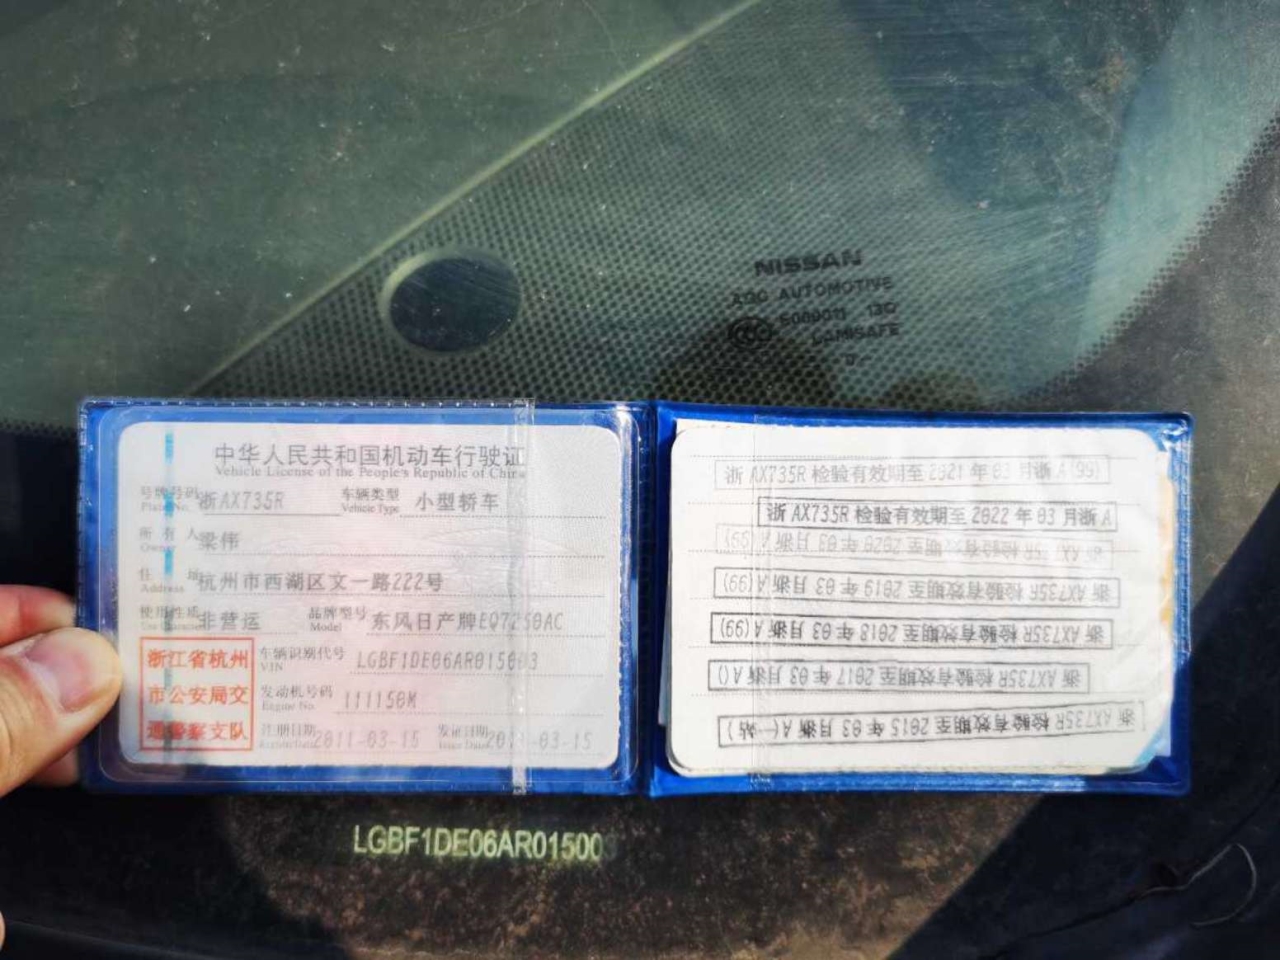 NISSAN
AUTOMOTIVE
LAMISAFE
中华人民共和国机动车行驶证
Vehicle License of the People's Republic of China
号牌号码 浙AX735R 车辆类型 小型轿车
Plate No. Vehicle Type
所有人 梁伟
Owner
住址 杭州市西湖区文一路222号
Address
使用性质 非营运 品牌型号 东风日产牌EQ7250AC
Model
浙江省杭州
市公安局交
通警察支队
车辆识别代号 LGBF1DE06AR015003
VIN
发动机号码 111150M
Engine No.
注册日期 2011-03-15 发证日期 2011-03-15
Issue Date
浙AX735R 检验有效期至 2021 年 03 月浙 A(99)
浙AX735R 检验有效期至 2022 年 03 月浙 A
检验有效期至 2020 年 03 月浙 A (99)
浙 AX735R 检验有效期至 2019 年 03 月浙 A(99)
浙 AX735R 检验有效期至 2018 年 03 月浙 A(99)
浙 AX735R 检验有效期至 2017 年 03 月浙 A()
浙 AX735R 检验有效期至 2015 年 03 月浙 A(一站)
LGBF1DE06AR01500